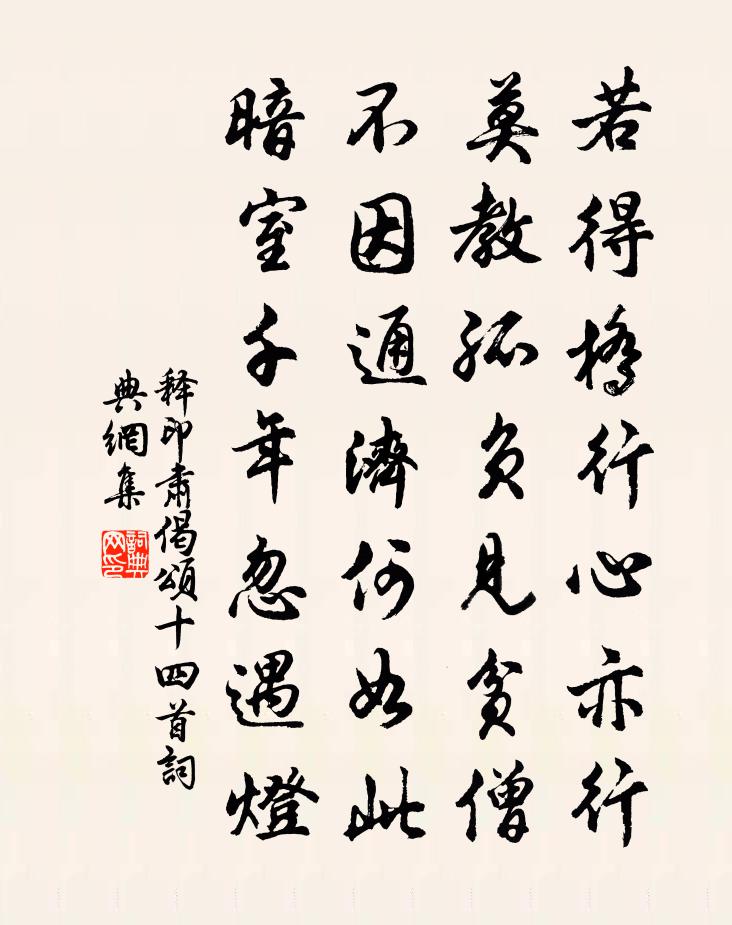 若得橋行心亦行
莫教孤負見貧僧
不因通濟何如此
暗室千年忽遇燈
释印肃偈頌十四首詞
典網集
詞典网印